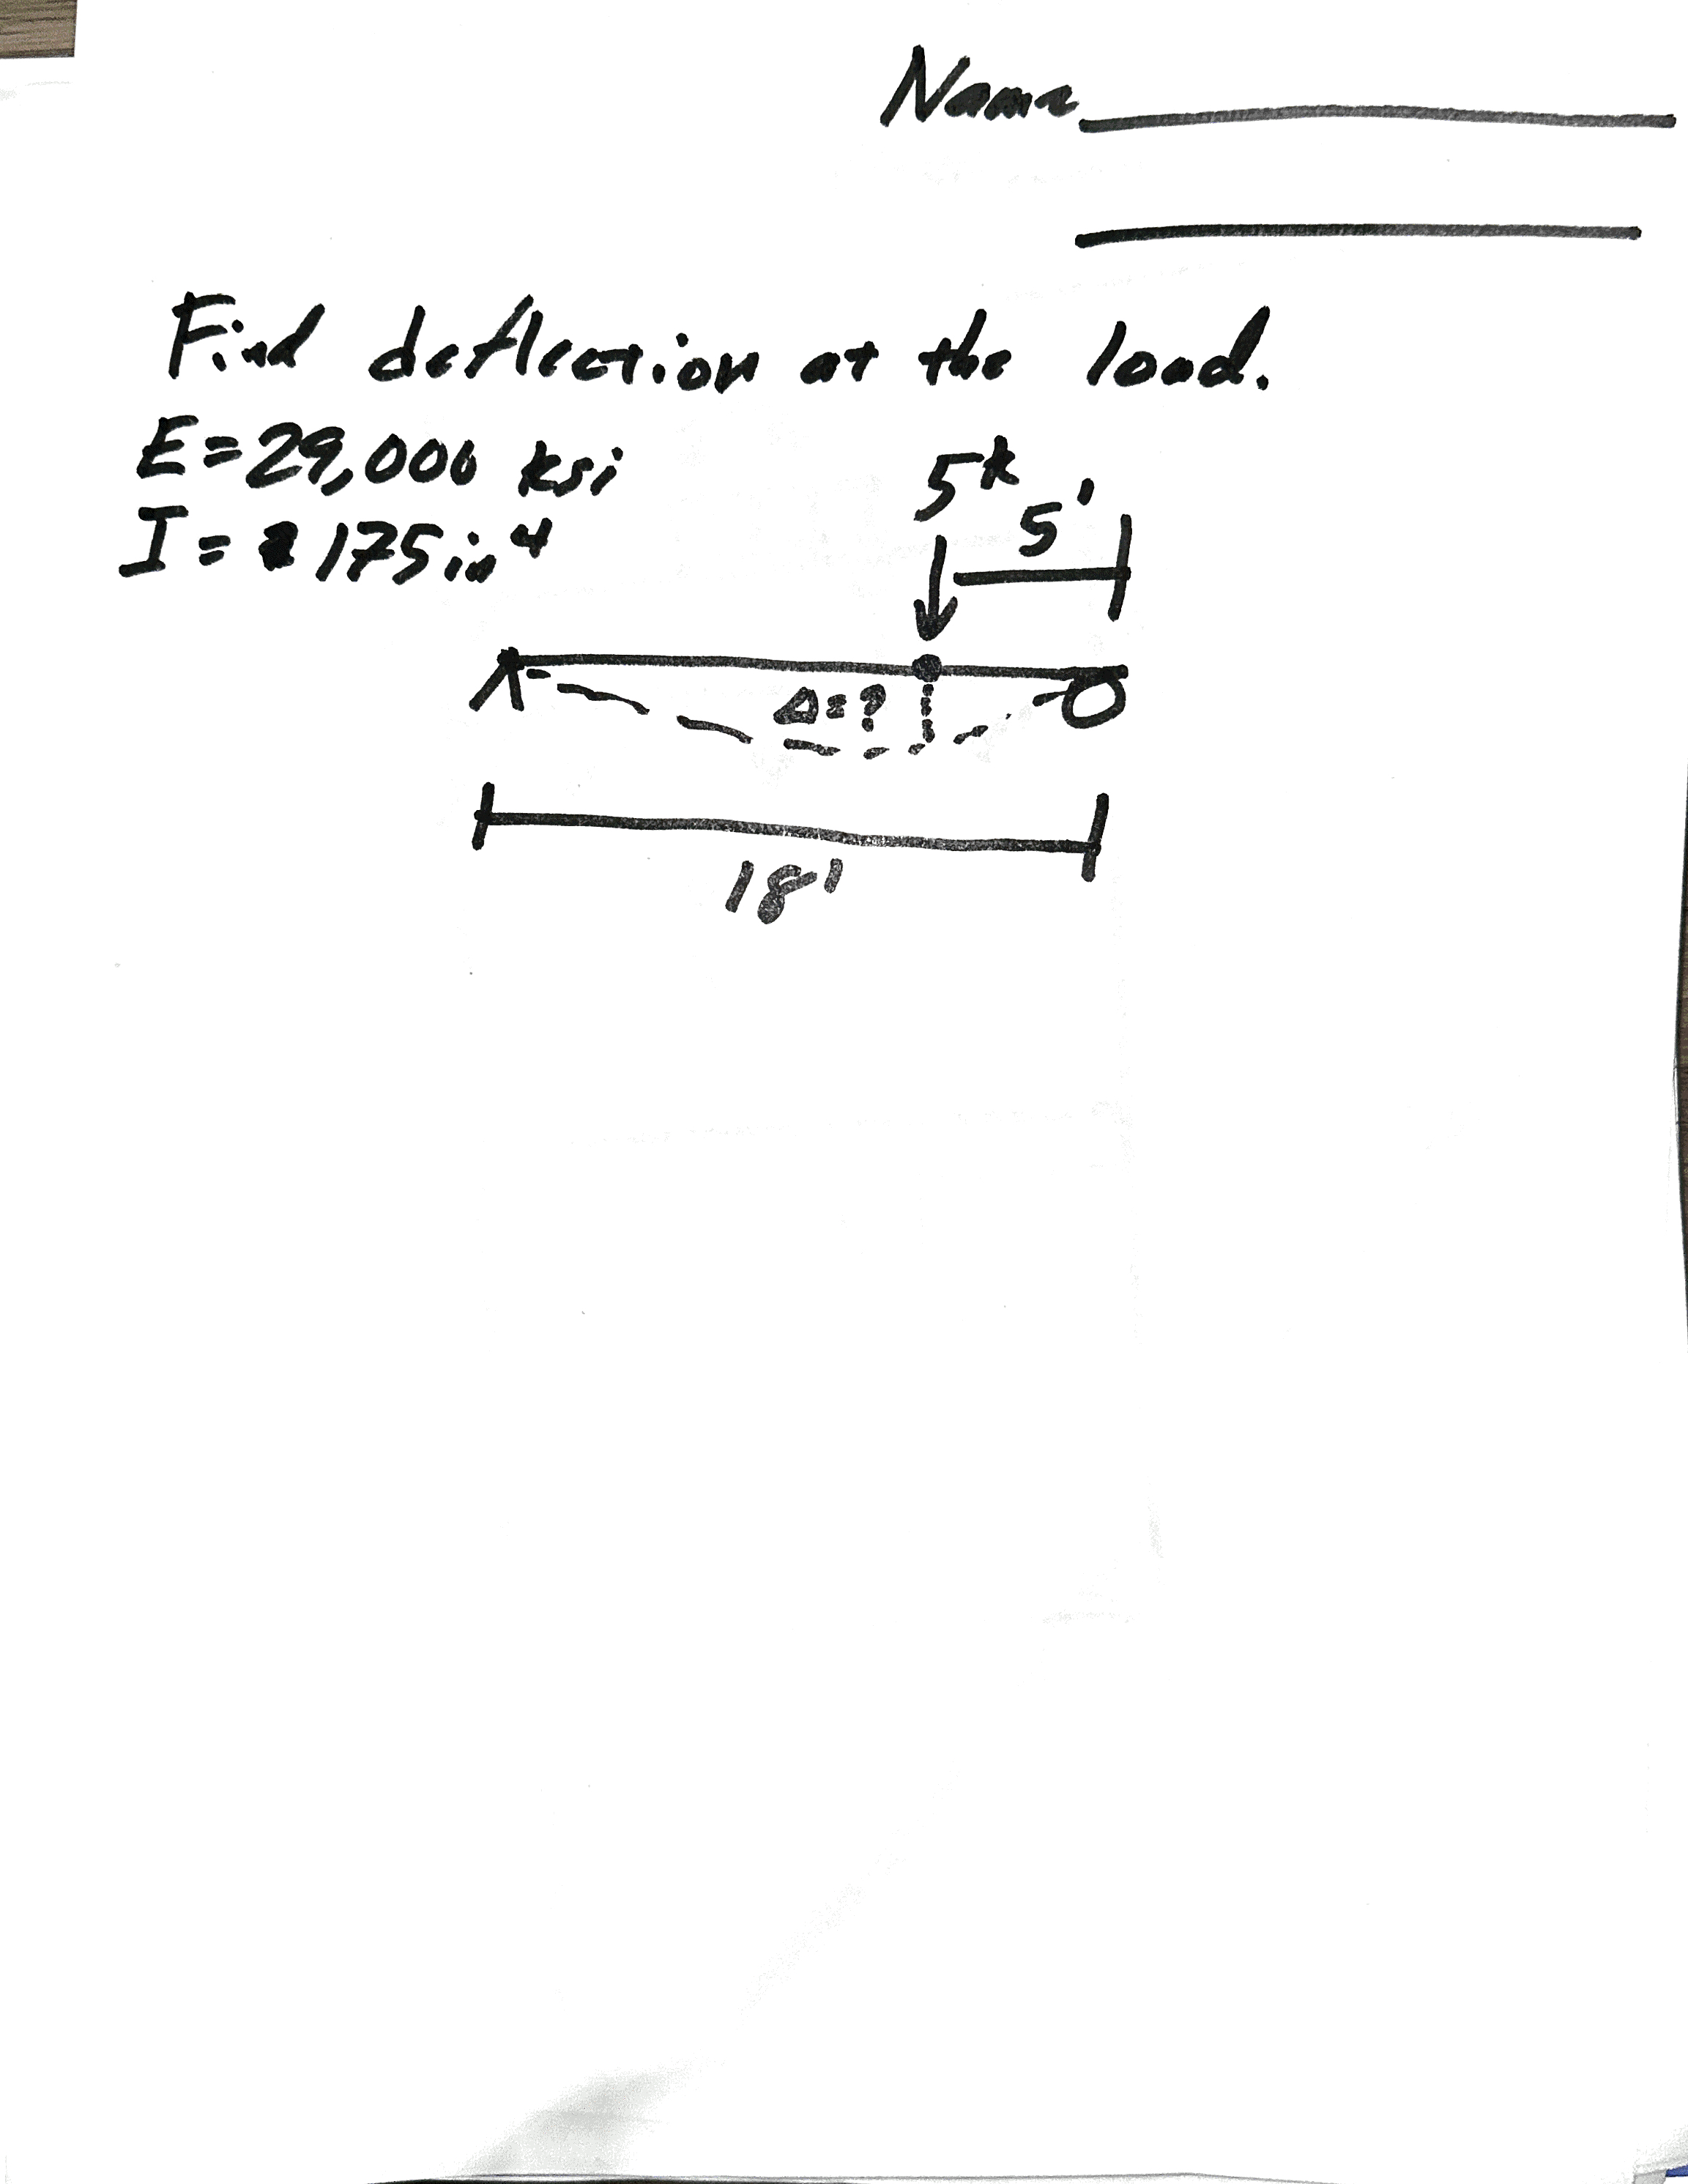 Name
Find deflection at the load.
E=29,000 ksi
I= 175in⁴
5ᵏ
5'
Δ=?
18'